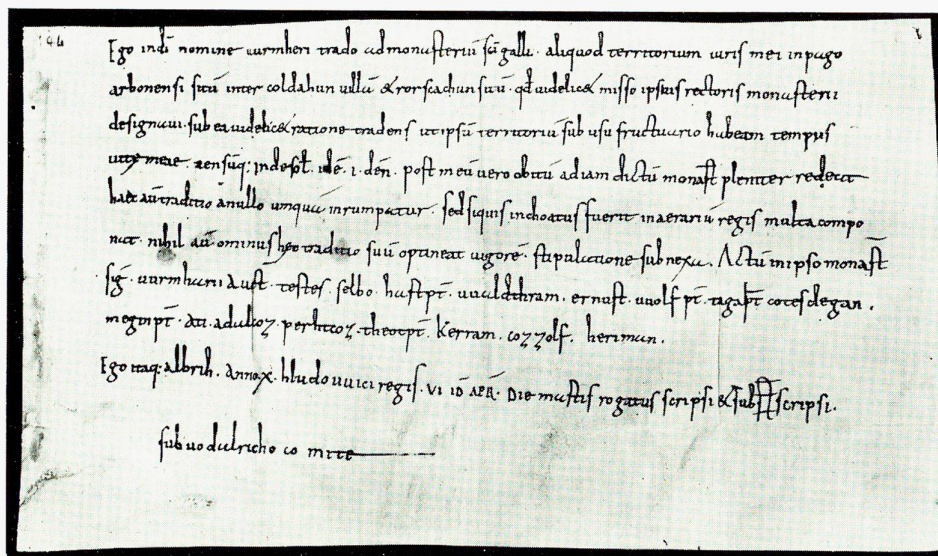 Ego in dei nomine uurmheri trado ad monasteriū sc̄i galli · aliquod territorium iuris mei in pago
arbonensi sitū inter coldahun uillā & rorscachun suū · qđ uidelic& misso ipsius rectoris monasterii
designaui · sub ea uidelic& ratione tradens ut ipsū territoriū sub usu fructuario habeam tempus
uitę meae · censūq: inde sol̄ · idē · i · deñ · post meū uero obitū ad iam dictū monast̄ pleniter redeat
haec aū traditio a nullo umquā inrumpatur · sed siquis inchoatus fuerit in aerariū regis multa compo
nat · nihil aū ominus hęc traditio suū optineat uigorē · stipulatione subnexa. Actū in ipso monast̄
siḡ · uurmharii auct̄ · testes · selbo · hastpt̄ · uualdthram · ernust · uuolfpt̄ · tagapt̄ cotesdegan ·
meginpt̄ · ati · adalcoz · perhtcoz · theotpt̄ · Kerram · cozzolf · heriman ·
Ego itaq: albrih · Anno x · hludouuici regis · vi id̄ apr̄ · Die martis rogatus scripsi & subscripsi.
sub uodalricho co mite